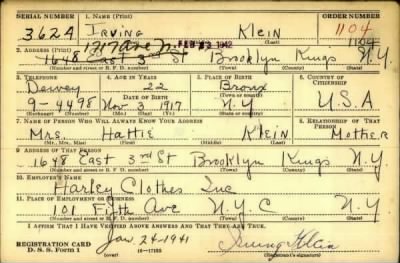 SERIAL NUMBER 1. NAME (Print) ORDER NUMBER
3624 Irving Klein 1104
(First) (Middle) (Last)
1317 Ave N FEB 1942 1104
2. ADDRESS (Print)
1648 East 3rd St Brooklyn Kings N.Y.
(Number and street or R. F. D. number) (Town) (County) (State)
3. TELEPHONE 4. AGE IN YEARS 5. PLACE OF BIRTH 6. COUNTRY OF CITIZENSHIP
Dewey 22 Bronx
DATE OF BIRTH (Town or county)
9-4498 Nov. 3 1917 N.Y U.S.A
(Exchange) (Number) (Mo.) (Day) (Yr.) (State or country)
7. NAME OF PERSON WHO WILL ALWAYS KNOW YOUR ADDRESS 8. RELATIONSHIP OF THAT PERSON
Mrs. Hattie Klein Mother
(Mr., Mrs., Miss) (First) (Middle) (Last)
9. ADDRESS OF THAT PERSON
1648 East 3rd St Brooklyn Kings N.Y.
(Number and street or R. F. D. number) (Town) (County) (State)
10. EMPLOYER'S NAME
Harley Clothes Inc
11. PLACE OF EMPLOYMENT OR BUSINESS
101 Fifth Ave N.Y.C N.Y
(Number and street or R. F. D. number) (Town) (County) (State)
I AFFIRM THAT I HAVE VERIFIED ABOVE ANSWERS AND THAT THEY ARE TRUE.
REGISTRATION CARD Jan. 24-1941 Irving Klein
D. S. S. Form 1 16-17105 (Registrant's signature)